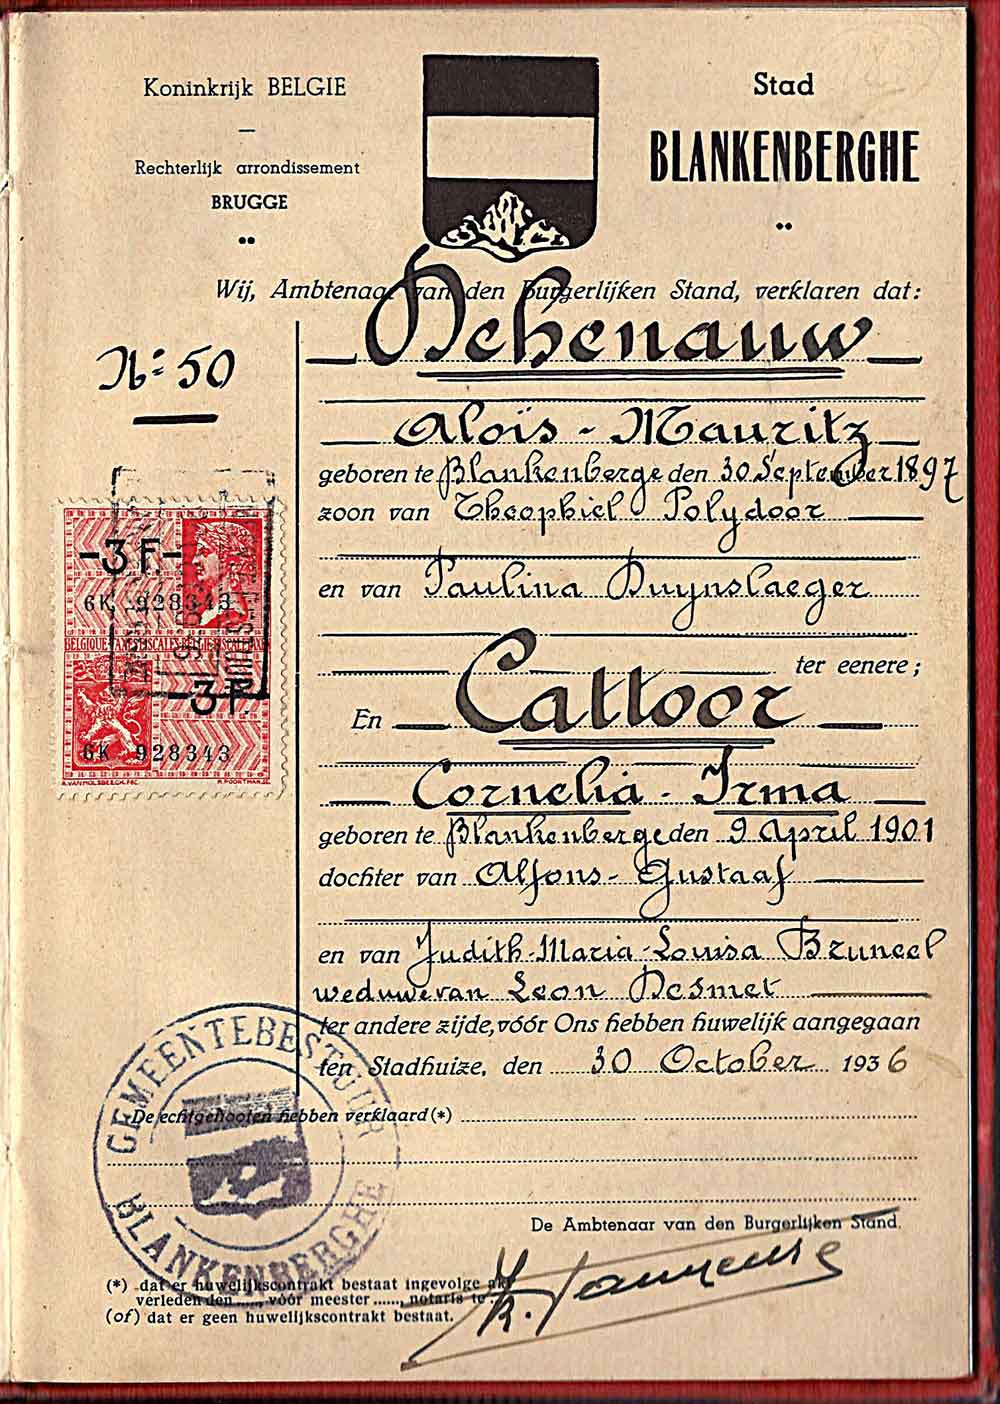 Koninkrijk BELGIE
Rechterlijk arrondissement
BRUGGE
Stad
BLANKENBERGHE
Wij, Ambtenaar van den Burgerlijken Stand, verklaren dat:
Nr 50
Dehenauw
Aloïs - Mauritz
geboren te Blankenberge den 30 September 1897
zoon van Theophiel Polydoor
en van Paulina Duynslaeger
ter eenere;
En Cattoor
Cornelia - Irma
geboren te Blankenberge den 9 April 1901
dochter van Alfons - Gustaaf
en van Judith-Maria-Louisa Bruneel
weduwe van Leon Desmet
ter andere zijde, vóór Ons hebben huwelijk aangegaan
ten Stadhuize, den 30 October 1936
De echtgenooten hebben verklaard (*)
De Ambtenaar van den Burgerlijken Stand.
(*) dat er huwelijkscontrakt bestaat ingevolge akt
verleden den ....., vóór meester ......, notaris te
(of) dat er geen huwelijkscontrakt bestaat.
-3 F.-
6K 928343
BELGIQUE-TAXES FISCALES-BELGIE-FISCALE TAXE
-3 F.
6K 928343
GEMEENTEBESTUUR
BLANKENBERGHE